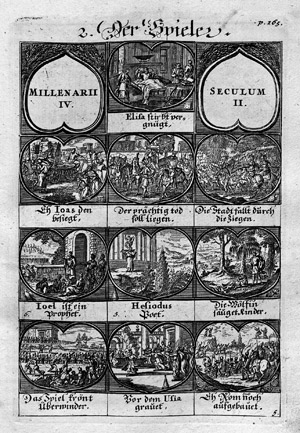 p. 265.
2. Der Spiele 2.
MILLENARII
IV.
SECULUM
II.
Elisa stirbt ver-
gnügt.
Eh Ioas den
besiegt.
Der prächtig tod
soll liegen.
Die Stadt fällt durch
die Ziegen.
Ioel ist ein
Prophet.
Hesiodus
Poet.
Die Wölfin
säuget Kinder.
Das Spiel krönt
Uberwinder.
Vor dem Usia
grauet.
Eh Rom noch
aufgebauet.